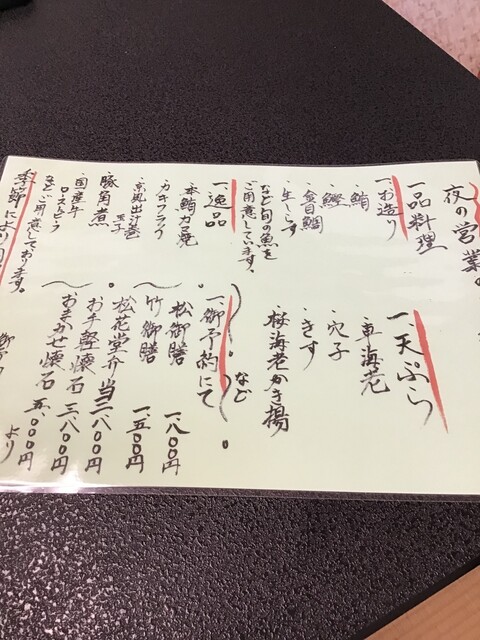 夜の営業
一品料理
一、お造り
・鮪
・鰹
・金目鯛
・生しらす
など旬の魚を
ご用意しています。
一、逸品
・本鮪カマ焼
・京風出汁巻玉子
・豚角煮
・国産牛
ローストビーフ
などご用意しております。
季節により
一、天ぷら
・車海老
・穴子
・きす
・桜海老かき揚
など
一、御予約にて
松御膳 一、八〇〇円
竹御膳 一、五〇〇円
松花堂弁当 一、八〇〇円
お手軽懐石 三、八〇〇円
おまかせ懐石 五、〇〇〇円
より